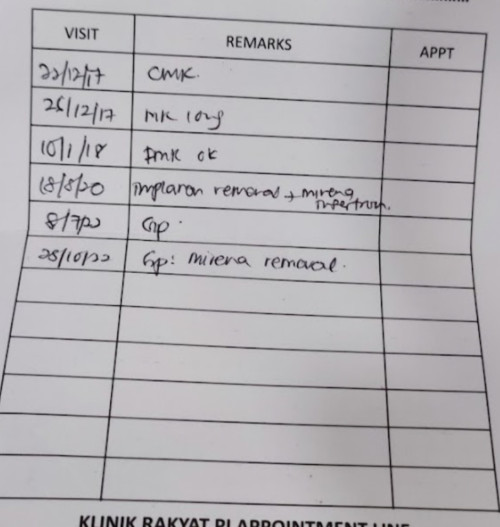 VISIT REMARKS APPT
22/12/17 CMK.
26/12/17 MK long
10/1/18 ok
18/8/20 Implanon removal + mirena
insertion.
8/7/22 Gp.
28/10/22 Gp: mirena removal.
KLINIK RAKYAT APPOINTMENT LINE